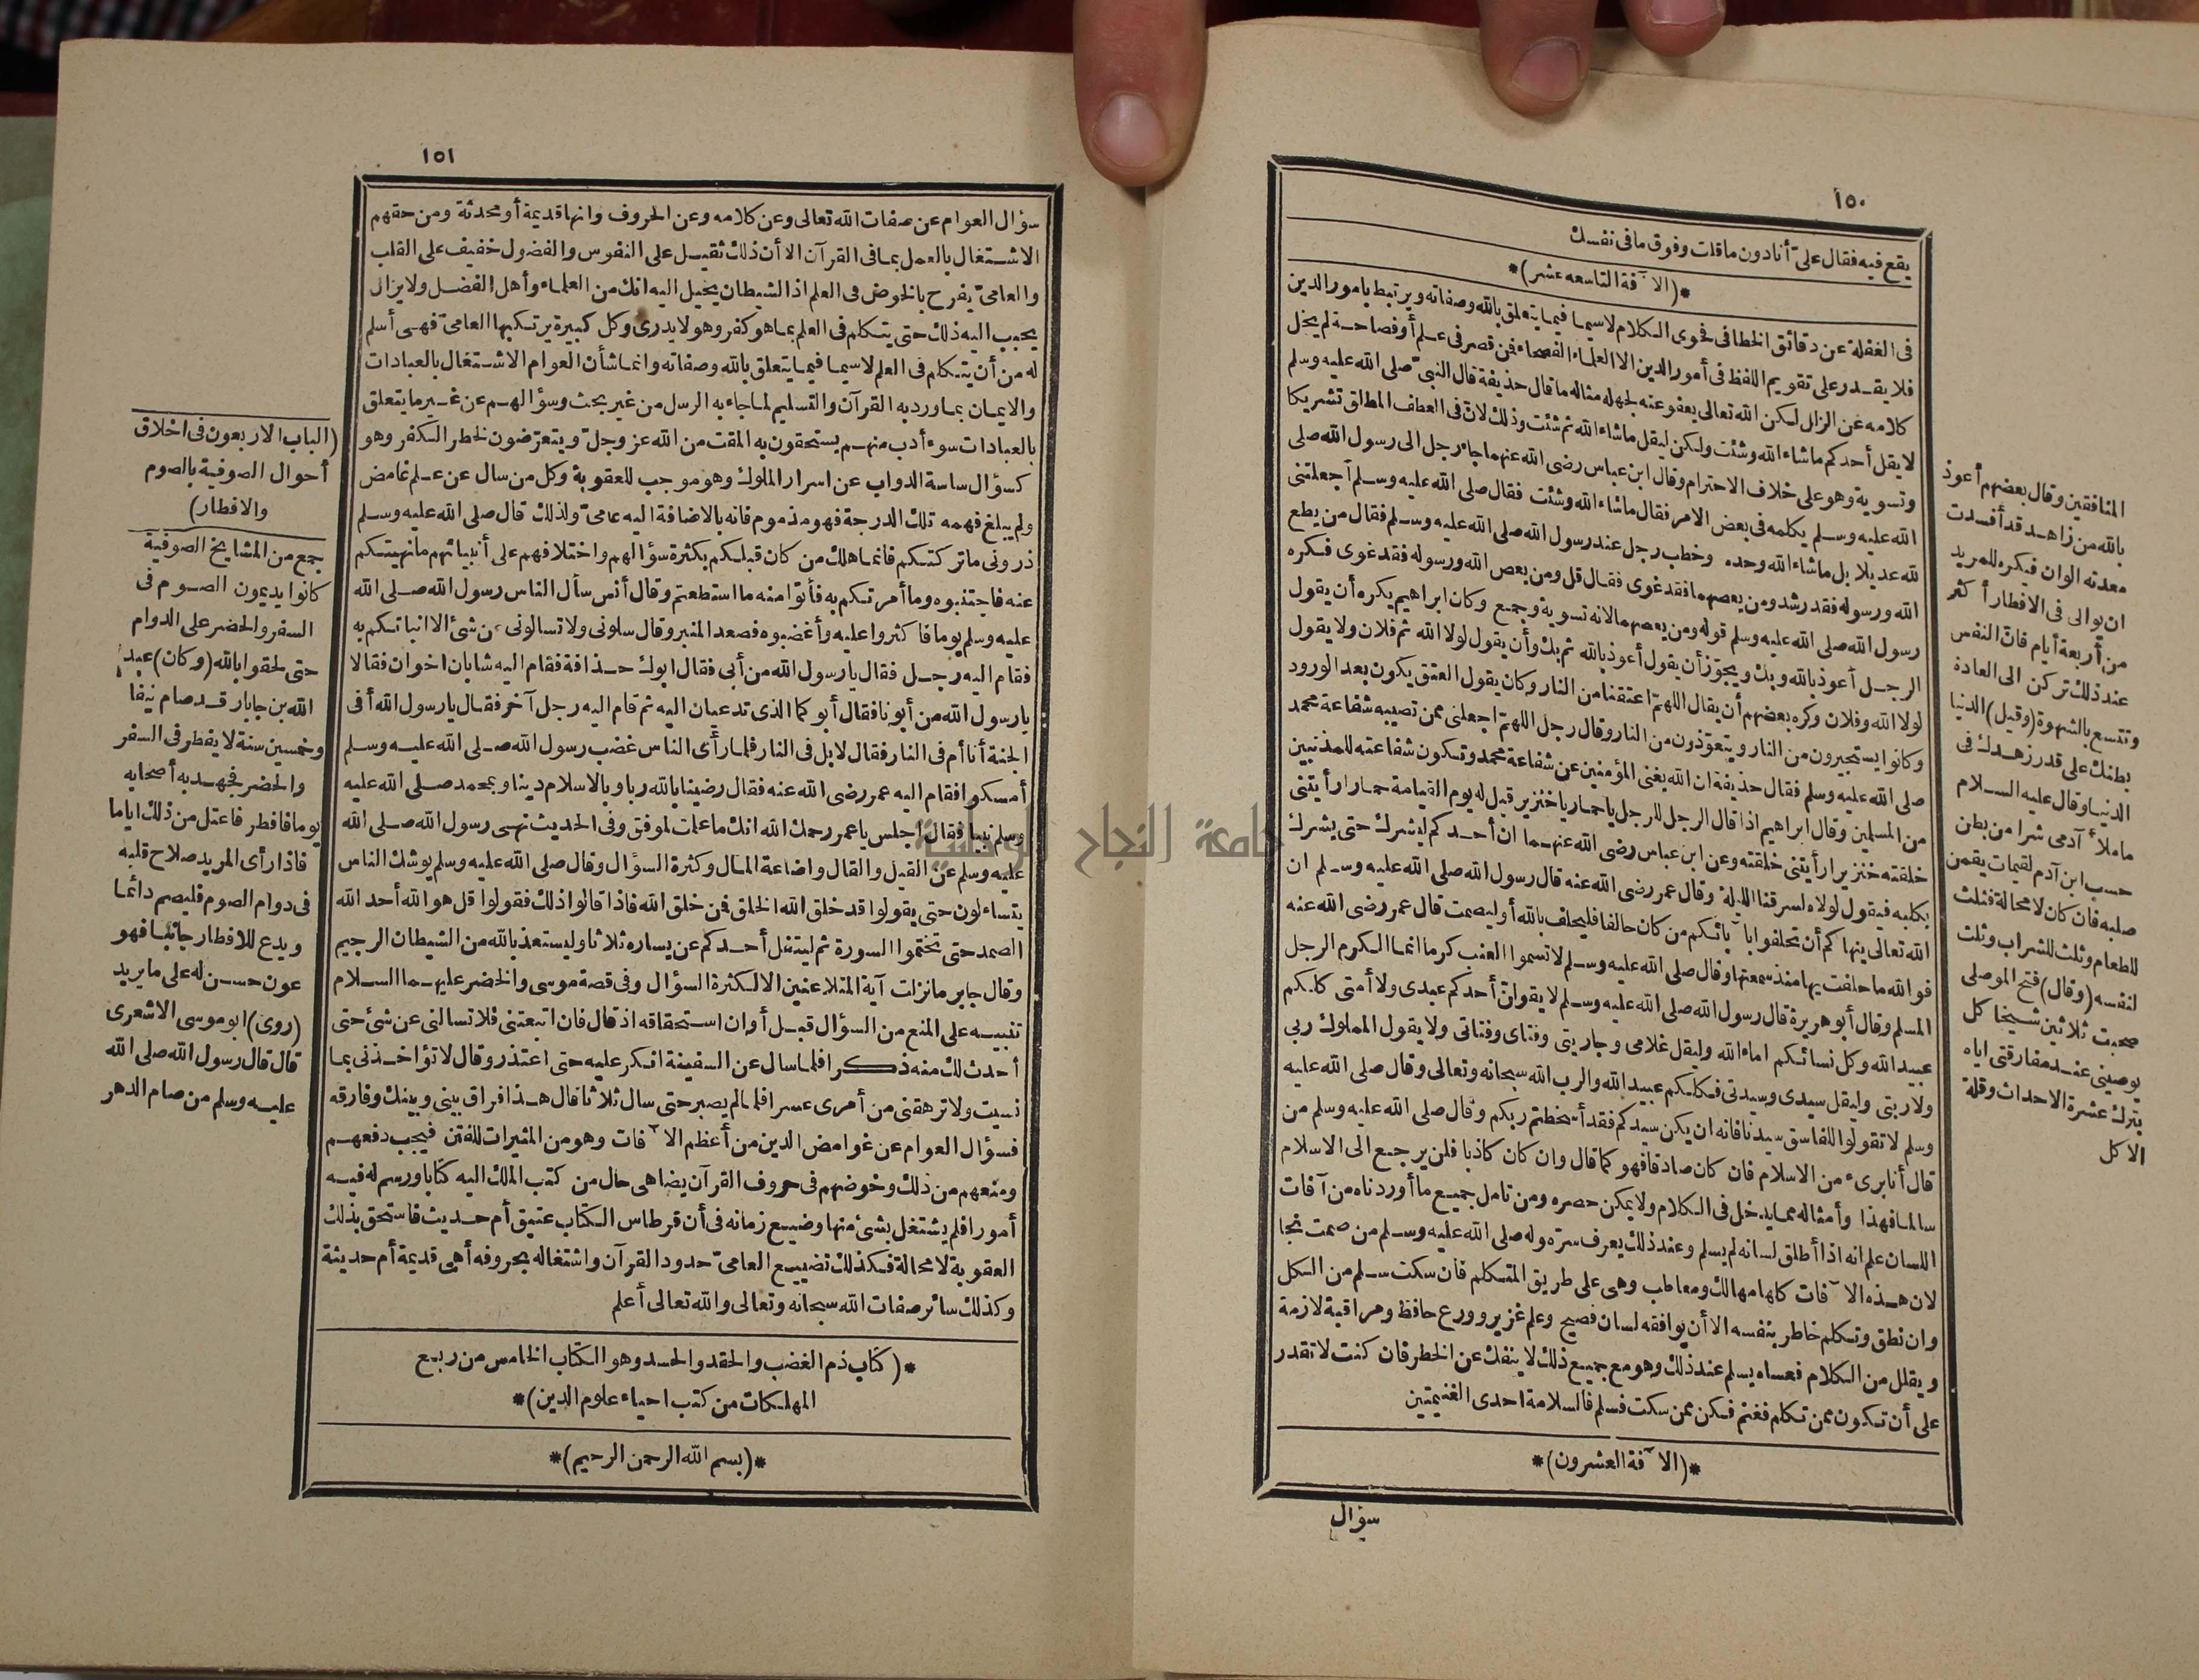 ١٥٠
يقع فيه فقال علىّ أنا دون ما قلت وفوق ما فى نفسك
*(الآفة التاسعه عشر)*
فى الغفلة عن دقائق الخطا فى فحوى الكلام لاسيما فيما يتعلق بالله وصفاته ويرتبط بامور الدين
فلا يقدر على تقويم اللفظ فى أمور الدين الا العلماء الفصحاء فن قصر فى علم أو فصاحة لم يخل
كلامه عن الزلل لكن الله تعالى يعفو عنه لجهله مثاله ما قال حذيفة قال النبىّ صلى الله عليه وسلم
لا يقل أحدكم ما شاء الله وشئت ولكن ليقل ما شاء الله ثم شئت وذلك لانّ فى العطف المطلق تشريكا
وتسوية وهو على خلاف الاحترام وقال ابن عباس رضى الله عنهما جاء رجل الى رسول الله صلى
الله عليه وسلم يكلمه فى بعض الامر فقال ما شاء الله وشئت فقال صلى الله عليه وسلم أجعلتنى
لله عديلا بل ما شاء الله وحده وخطب رجل عند رسول الله صلى الله عليه وسلم فقال من يطع
الله ورسوله فقد رشد ومن يعصهما فقد غوى فقال قل ومن يعص الله ورسوله فقد غوى فكره
رسول الله صلى الله عليه وسلم قوله ومن يعصهما لانه تسوية وجمع وكان ابراهيم يكره أن يقول
الرجل أعوذ بالله وبك ويجوّز أن يقول أعوذ بالله ثم بك وأن يقول لولا الله ثم فلان ولا يقول
لولا الله وفلان وكره بعضهم أن يقال اللهمّ اعتقنا من النار وكان يقول العتق يكون بعد الورود
وكانوا يستجيرون من النار ويتعوّذون من النار وقال رجل اللهمّ اجعلنى ممن تصيبه شفاعة محمد
صلى الله عليه وسلم فقال حذيفة ان الله يغنى المؤمنين عن شفاعة محمد وتكون شفاعته للمذنبين
من المسلمين وقال ابراهيم اذا قال الرجل للرجل يا حمار يا خنزير قيل له يوم القيامة حمارا رأيتنى
خلقته خنزيرا رأيتنى خلقته وعن ابن عباس رضى الله عنهما ان أحدكم ليشرك حتى يشرك
بكلبه فيقول لولاه لسرقنا الليلة وقال عمر رضى الله عنه قال رسول الله صلى الله عليه وسلم ان
الله تعالى ينهاكم أن تحلفوا بآبائكم من كان حالفا فليحلف بالله أو ليصمت قال عمر رضى الله عنه
فوالله ما حلفت بها منذ سمعتها وقال صلى الله عليه وسلم لا تسموا العنب كرما انما الكرم الرجل
المسلم وقال أبو هريرة قال رسول الله صلى الله عليه وسلم لا يقولنّ أحدكم عبدى ولا أمتى كلكم
عبيد الله وكل نسائكم اماء الله وليقل غلامى وجاريتى وفتاى وفتاتى ولا يقول المملوك ربى
ولا ربتى وليقل سيدى وسيدتى فكلكم عبيد الله والرب الله سبحانه وتعالى وقال صلى الله عليه
وسلم لا تقولوا للفاسق سيدنا فانه ان يكن سيدكم فقد أسخطتم ربكم وقال صلى الله عليه وسلم من
قال أنا برىء من الاسلام فان كان صادقا فهو كما قال وان كان كاذبا فلن يرجع الى الاسلام
سالما فهذا وأمثاله مما يدخل فى الكلام ولا يمكن حصره ومن تامل جميع ما أوردناه من آفات
اللسان علم انه اذا أطلق لسانه لم يسلم وعند ذلك يعرف سرّ قوله صلى الله عليه وسلم من صمت نجا
لان هذه الآفات كلها مهالك ومعاطب وهى على طريق المتكلم فان سكت سلم من الكل
وان نطق وتكلم خاطر بنفسه الا أن يوافقه لسان فصيح وعلم غزير وورع حافظ ومراقبة لازمة
ويقلل من الكلام فعساه يسلم عند ذلك وهو مع جميع ذلك لا ينفك عن الخطر فان كنت لا تقدر
على أن تكون ممن تكلم فغنم فكن ممن سكت فسلم فالسلامة احدى الغنيمتين
*(الآفة العشرون)*
سؤال
المنافقين وقال بعضهم أعوذ
بالله من زاهد قد أفسدت
معدته الوان فيكره للمريد
ان يوالى فى الافطار أكثر
من أربعة أيام فان النفس
عند ذلك تركن الى العادة
وتتسع بالشهوة (وقيل) الدنيا
بطنك على قدر زهدك فى
الدنيا وقال عليه السلام
ما ملأ آدمى شرا من بطن
حسب ابن آدم لقيمات يقمن
صلبه فان كان لا محالة فثلث
للطعام وثلث للشراب وثلث
لنفسه (وقال) فتح الموصلى
صحبت ثلاثين شيخا كل
يوصينى عند مفارقتى اياه
بترك عشرة الاحداث وقلة
الاكل
١٥١
سؤال العوام عن صفات الله تعالى وعن كلامه وعن الحروف وانها قديمة أو محدثة ومن حقهم
الاشتغال بالعمل بما فى القرآن الا أن ذلك ثقيل على النفوس والفضول خفيف على القلب
والعامىّ يفرح بالخوض فى العلم اذ الشيطان يخيل اليه انك من العلماء وأهل الفضل ولا يزال
يحبب اليه ذلك حتى يتكلم فى العلم بما هو كفر وهو لا يدرى وكل كبيرة يرتكبها العامىّ فهى أسلم
له من أن يتكلم فى العلم لاسيما فيما يتعلق بالله وصفاته وانما شأن العوام الاشتغال بالعبادات
والايمان بما ورد به القرآن والتسليم لما جاء به الرسل من غير بحث وسؤالهم عن غير ما يتعلق
بالعبادات سوء أدب منهم يستحقون به المقت من الله عز وجلّ ويتعرّضون لخطر الكفر وهو
كسؤال ساسة الدواب عن اسرار الملوك وهو موجب للعقوبة وكل من سال عن علم غامض
ولم يبلغ فهمه تلك الدرجة فهو مذموم فانه بالاضافة اليه عامىّ ولذلك قال صلى الله عليه وسلم
ذرونى ما تركتكم فانما هلك من كان قبلكم بكثرة سؤالهم واختلافهم على أنبيائهم ما نهيتكم
عنه فاجتنبوه وما أمرتكم به فأتوا منه ما استطعتم وقال أنس سأل الناس رسول الله صلى الله
عليه وسلم يوما فاكثروا عليه وأغضبوه فصعد المنبر وقال سلونى ولا تسالونى عن شئ الا انباتكم به
فقام اليه رجل فقال يا رسول الله من أبى فقال ابوك حذافة فقام اليه شابان اخوان فقالا
يا رسول الله من أبونا فقال أبوكما الذى تدعيان اليه ثم قام اليه رجل آخر فقال يا رسول الله أفى
الجنة أنا أم فى النار فقال لا بل فى النار فلما رأى الناس غضب رسول الله صلى الله عليه وسلم
أمسكوا فقام اليه عمر رضى الله عنه فقال رضينا بالله ربا وبالاسلام دينا وبمحمد صلى الله عليه
وسلم نبيا فقال اجلس يا عمر رحمك الله انك ما علمت لموفق وفى الحديث نهى رسول الله صلى الله
عليه وسلم عن القيل والقال واضاعة المال وكثرة السؤال وقال صلى الله عليه وسلم يوشك الناس
يتساءلون حتى يقولوا قد خلق الله الخلق فن خلق الله فاذا قالوا ذلك فقولوا قل هو الله أحد الله
الصمد حتى تختموا السورة ثم ليتفل أحدكم عن يساره ثلاثا وليستعذ بالله من الشيطان الرجيم
وقال جابر ما نزلت آية المتلاعنين الا لكثرة السؤال وفى قصة موسى والخضر عليهما السلام
تنبيه على المنع من السؤال قبل أوان استحقاقه اذ قال فان اتبعتنى فلا تسالنى عن شئ حتى
أحدث لك منه ذكرا فلما سال عن السفينة انكر عليه حتى اعتذر وقال لا تؤاخذنى بما
نسيت ولا ترهقنى من أمرى عسرا فلما لم يصبر حتى سال ثلاثا قال هذا فراق بينى وبينك وفارقه
فسؤال العوام عن غوامض الدين من أعظم الآفات وهو من المثيرات للفتن فيجب دفعهم
ومنعهم من ذلك وخوضهم فى حروف القرآن يضاهى حال من كتب الملك اليه كتابا ورسم له فيه
أمورا فلم يشتغل بشئ منها وضيع زمانه فى أن قرطاس الكتاب عتيق أم حديث فاستحق بذلك
العقوبة لا محالة فكذلك تضييع العامىّ حدود القرآن واشتغاله بحروفه أهى قديمة أم حديثة
وكذلك سائر صفات الله سبحانه وتعالى والله تعالى أعلم
*(كتاب ذم الغضب والحقد والحسد وهو الكتاب الخامس من ربع
المهلكات من كتب احياء علوم الدين)*
*(بسم الله الرحمن الرحيم)*
(الباب الاربعون فى اخلاق
أحوال الصوفية بالصوم
والافطار)
جمع من المشايخ الصوفية
كانوا يديمون الصوم فى
السفر والحضر على الدوام
حتى لحقوا بالله (وكان) عبد
الله بن جابار قد صام نيفا
وخمسين سنة لا يفطر فى السفر
والحضر فجهد به أصحابه
يوما فافطر فاعتل من ذلك اياما
فاذا رأى المريد صلاح قلبه
فى دوام الصوم فليصم دائما
ويدع للافطار جانبا فهو
عون حسن له على ما يريد
(روى) ابو موسى الاشعرى
قال قال رسول الله صلى الله
عليه وسلم من صام الدهر
جامعة النجاح الوطنية